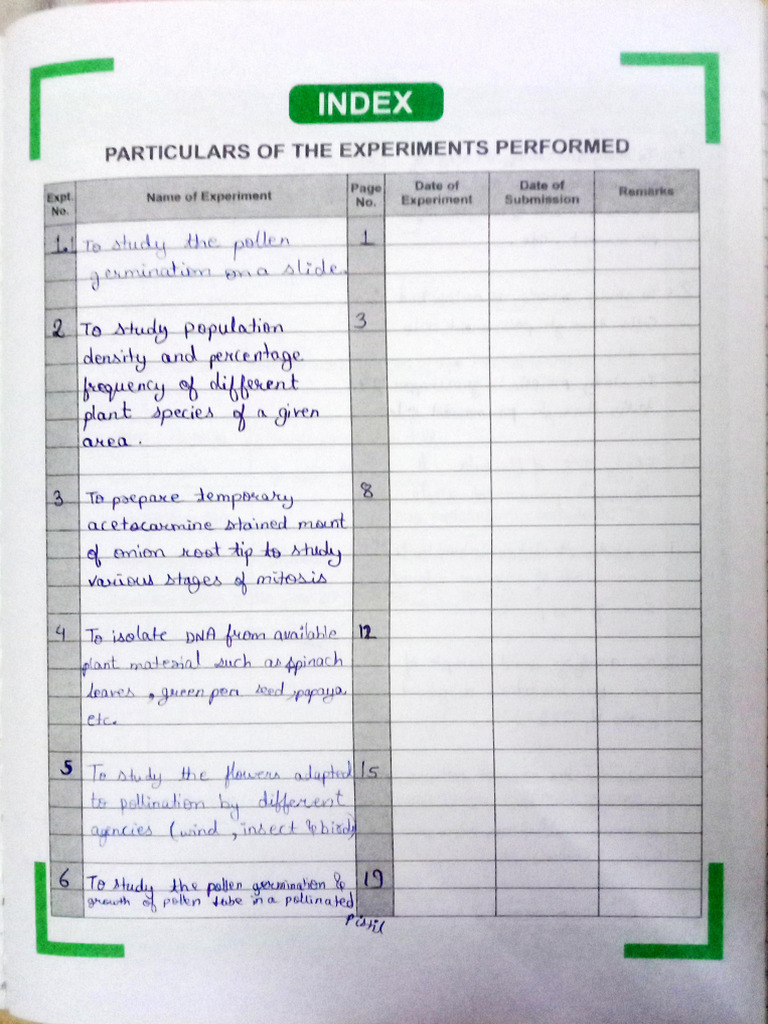 INDEX
PARTICULARS OF THE EXPERIMENTS PERFORMED
Expt. No. Name of Experiment Page No. Date of Experiment Date of Submission Remarks
1. To study the pollen 1
germination on a slide.
2 To study population 3
density and percentage
frequency of different
plant species of a given
area.
3 To prepare temporary 8
acetocarmine stained mount
of onion root tip to study
various stages of mitosis
4 To isolate DNA from available 12
plant material such as spinach
leaves, green pea seed, papaya
etc.
5 To study the flowers adapted 15
to pollination by different
agencies (wind, insect & bird)
6 To study the pollen germination & 19
growth of pollen tube in a pollinated
pistil